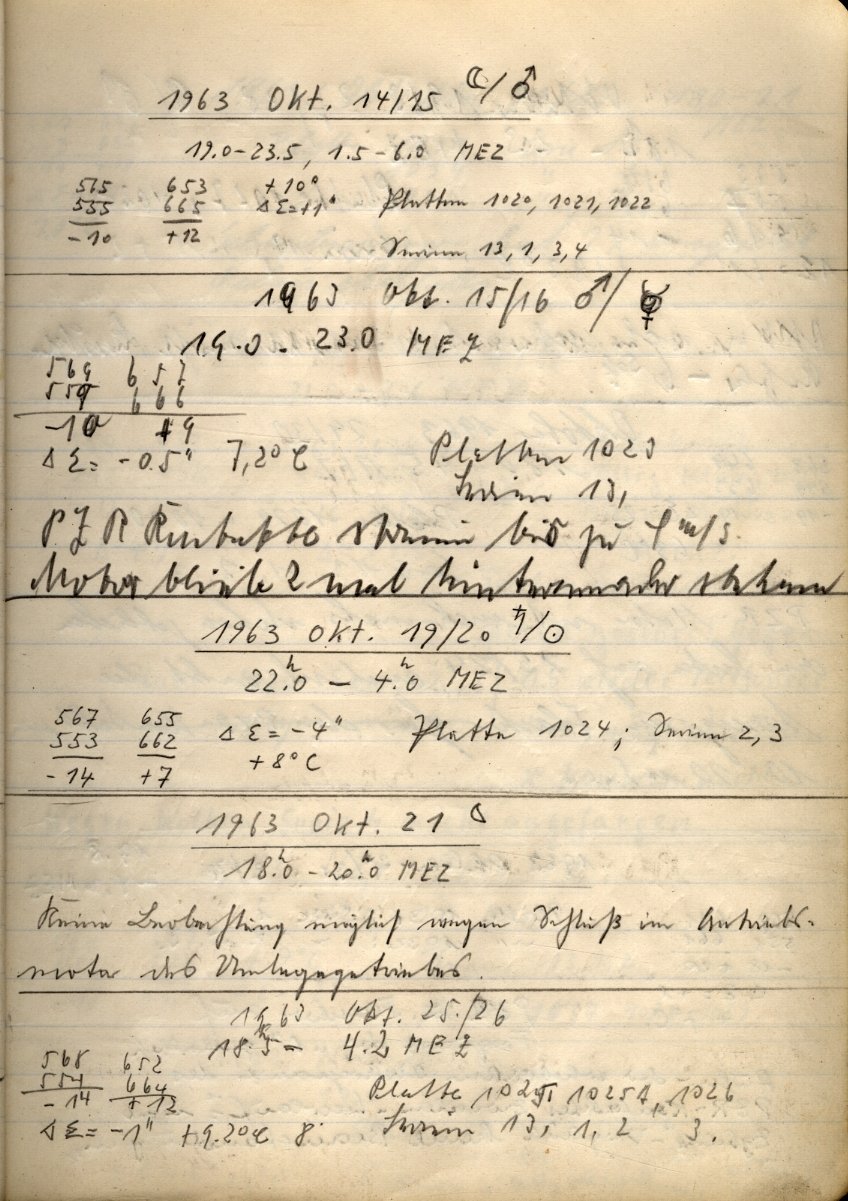 1963 Okt. 14/15 ☾/♂
19.0-23.5, 1.5-6.0 MEZ
565 653 +10°
555 665 Δ Σ=+1" Platten 1020, 1021, 1022
-10 +12
Serien 13, 1, 3, 4
1963 Okt. 15/16 ♂/☿
19.0 - 23.0 MEZ
569 657
559 666
-10 +9
Δ Σ= -0.5" 7,2°C Platten 1023
Serien 13,
P.Z R bis zu m/s.
Motor blieb 2 mal hintereinander stehen
1963 Okt. 19/20 ♄/☉
22.ʰ0 - 4.ʰ0 MEZ
567 655 Δ Σ = -4" Platte 1024; Serien 2, 3
553 662 +8°C
-14 +7
1963 Okt. 21
18.ʰ0 - 20.ʰ0 MEZ
Keine Beobachtung möglich wegen Schluß im Antriebs-
motor des
1963 Okt. 25./26
18.ʰ5 - 4.2 MEZ
568 652
554 664 Platte 1025A, 1026
-14 +12
Δ Σ= -1" +9.2°C 8 Serien 13, 1, 2 3.